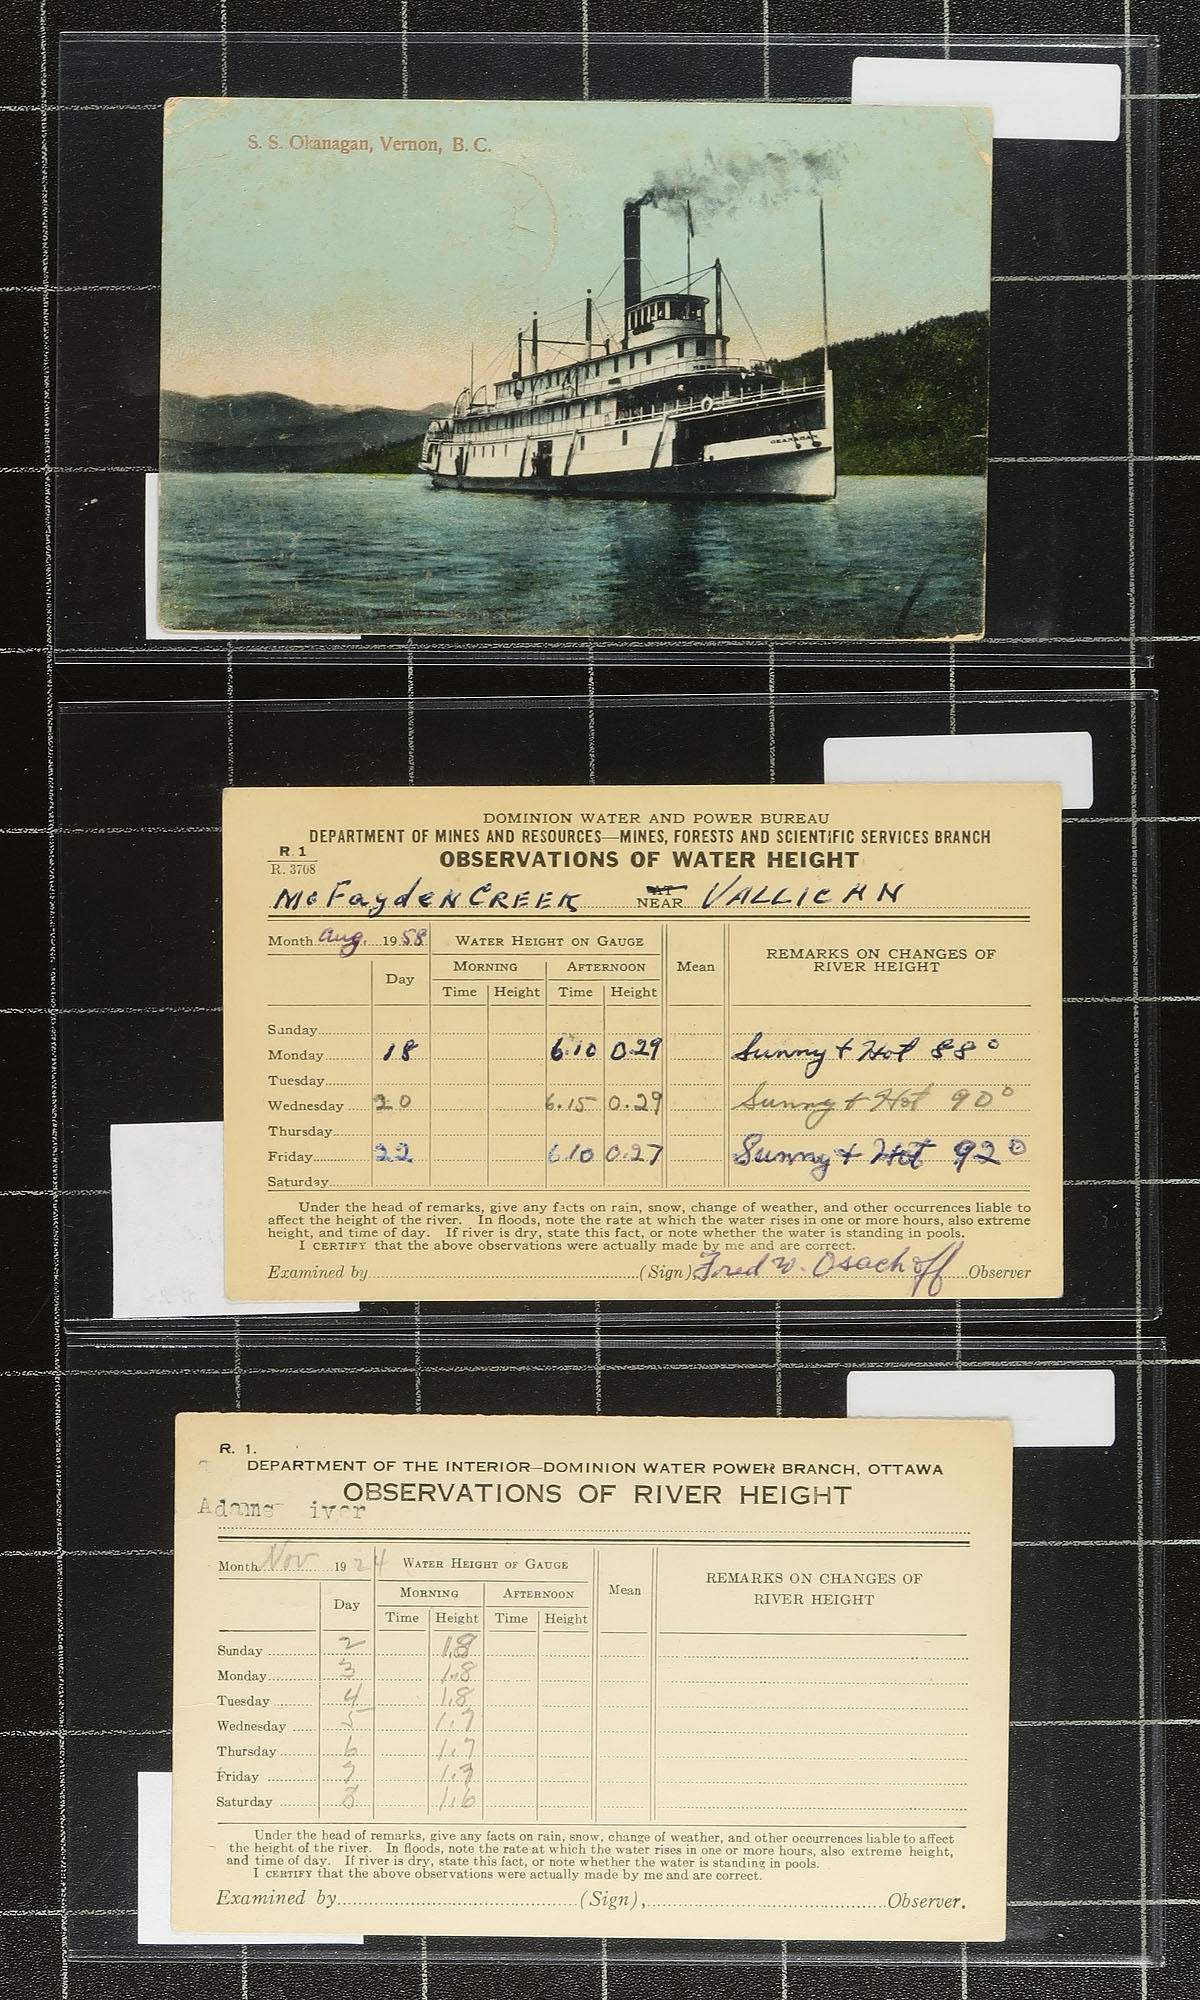 S. S. Okanagan, Vernon, B. C.
OKANAGAN
DOMINION WATER AND POWER BUREAU
DEPARTMENT OF MINES AND RESOURCES—MINES, FORESTS AND SCIENTIFIC SERVICES BRANCH
R. 1
R. 3708
OBSERVATIONS OF WATER HEIGHT
McFayden CREEK AT NEAR VALLICAN
Month Aug. 1958 WATER HEIGHT ON GAUGE
REMARKS ON CHANGES OF RIVER HEIGHT
Day MORNING AFTERNOON Mean
Time Height Time Height
Sunday
Monday 18 6.10 0.29 Sunny + Hot 88°
Tuesday
Wednesday 20 6.15 0.29 Sunny + Hot 90°
Thursday
Friday 22 6.10 0.27 Sunny + Hot 92°
Saturday
Under the head of remarks, give any facts on rain, snow, change of weather, and other occurrences liable to
affect the height of the river. In floods, note the rate at which the water rises in one or more hours, also extreme
height, and time of day. If river is dry, state this fact, or note whether the water is standing in pools.
I CERTIFY that the above observations were actually made by me and are correct.
Examined by (Sign) Fred W. Osachoff Observer
R. 1.
DEPARTMENT OF THE INTERIOR—DOMINION WATER POWER BRANCH, OTTAWA
OBSERVATIONS OF RIVER HEIGHT
Adams iver
Month Nov 1924 WATER HEIGHT OF GAUGE
REMARKS ON CHANGES OF
RIVER HEIGHT
Day MORNING AFTERNOON Mean
Time Height Time Height
Sunday 2 1.8
Monday 3 1.8
Tuesday 4 1.8
Wednesday 5 1.7
Thursday 6 1.7
Friday 7 1.7
Saturday 8 1.6
Under the head of remarks, give any facts on rain, snow, change of weather, and other occurrences liable to affect
the height of the river. In floods, note the rate at which the water rises in one or more hours, also extreme height,
and time of day. If river is dry, state this fact, or note whether the water is standing in pools.
I CERTIFY that the above observations were actually made by me and are correct.
Examined by (Sign), Observer.